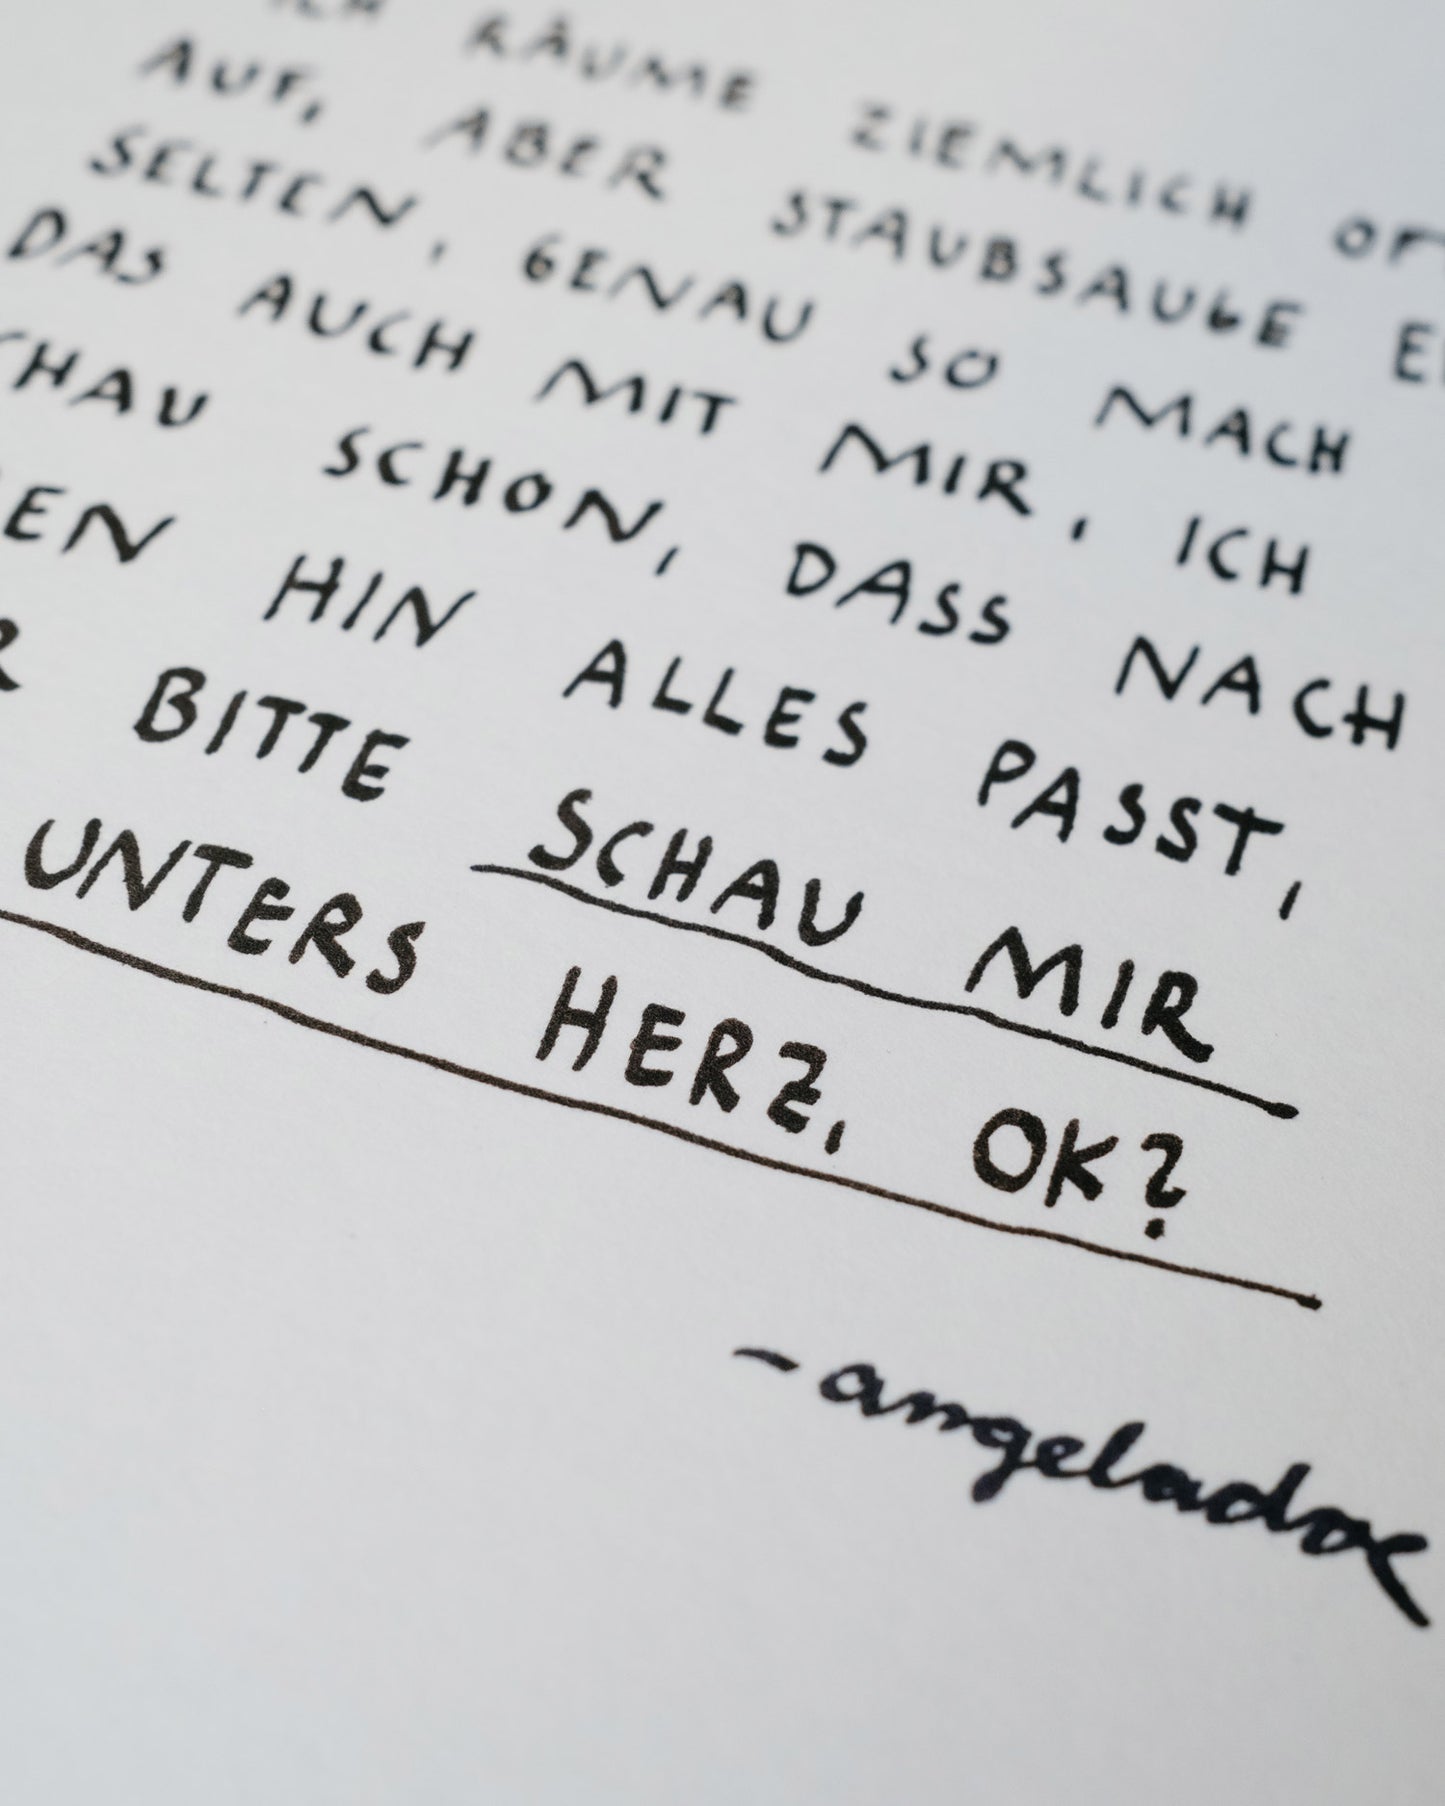 ICH RÄUME ZIEMLICH OF
AUF, ABER STAUBSAUGE E
SELTEN, GENAU SO MACH
DAS AUCH MIT MIR, ICH
CHAU SCHON, DASS NACH
EN HIN ALLES PASST,
R BITTE SCHAU MIR
UNTERS HERZ, OK?
-angeladoe